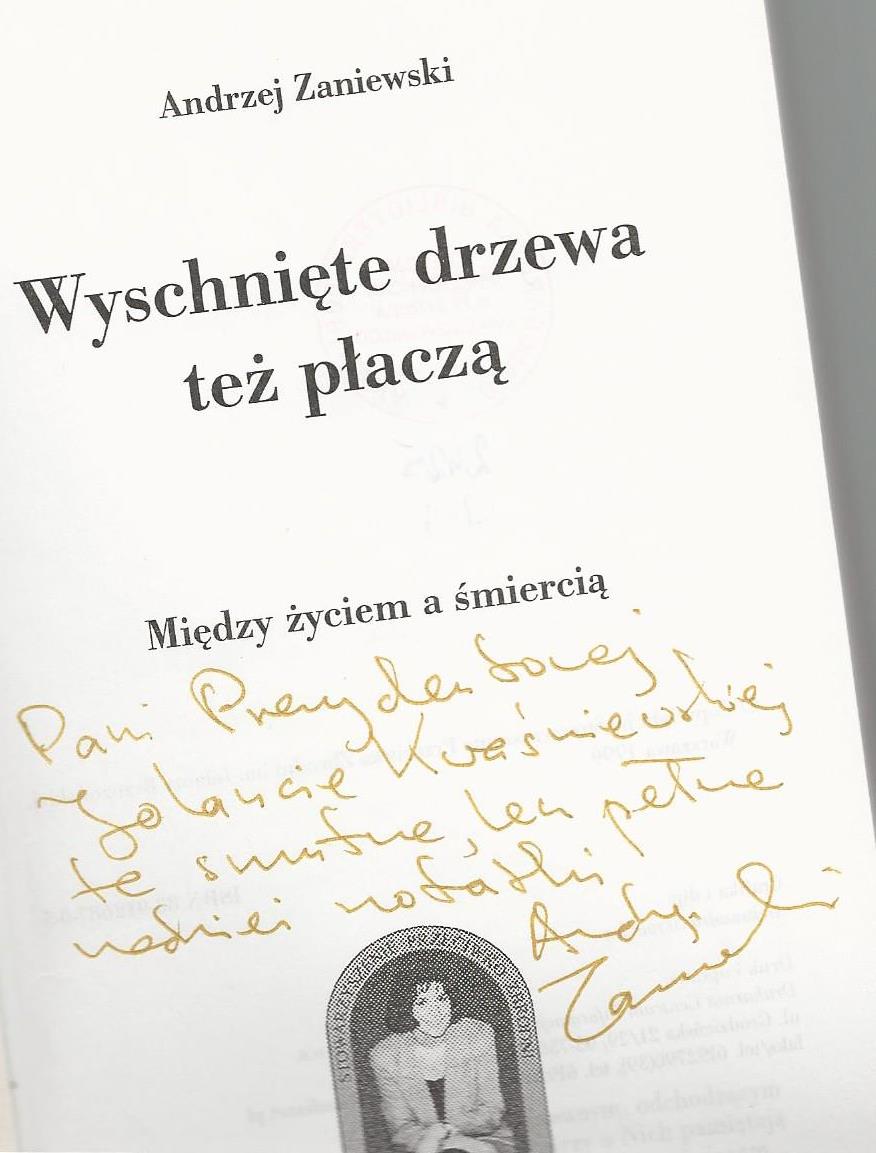 Andrzej Zaniewski
Wyschnięte drzewa
też płaczą
Między życiem a śmiercią
Pani Prezydentowej
Jolancie Kwaśniewskiej
te smutne, lecz pełne
nadziei notatki
Andrzej
Zaniewski
STOWARZYSZENIE